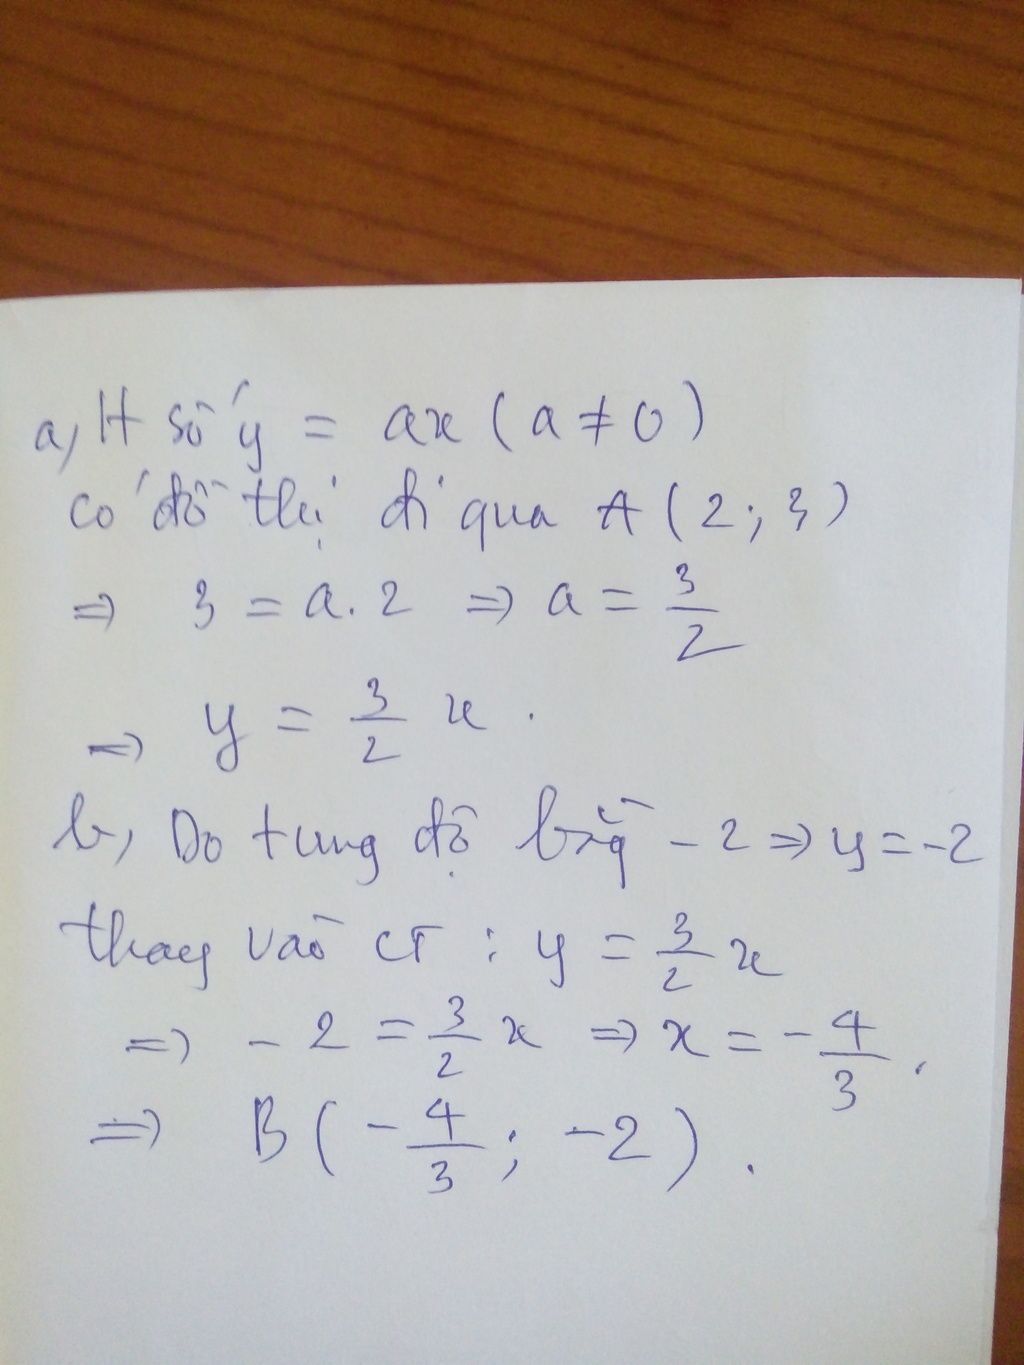 a, H số y = ax (a ≠ 0)
có đồ thị đi qua A(2; 3)
⇒ 3 = a.2 ⇒ a = 3/2
⇒ y = 3/2 x.
b, Do tung độ bằg -2 ⇒ y = -2
thay vào CT: y = 3/2 x
⇒ -2 = 3/2 x ⇒ x = -4/3.
⇒ B(-4/3; -2).